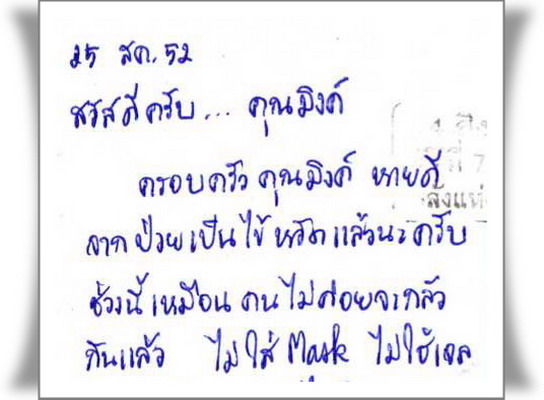 25 สค. 52
สวัสดีครับ... คุณมิงค์
ครอบครัวคุณมิงค์ หายดี
จากป่วยเป็นไข้หวัดแล้วนะครับ
ช่วงนี้เหมือนคนไม่ค่อยจะกลัว
กันแล้ว ไม่ใส่ Mask ไม่ใช้เจล